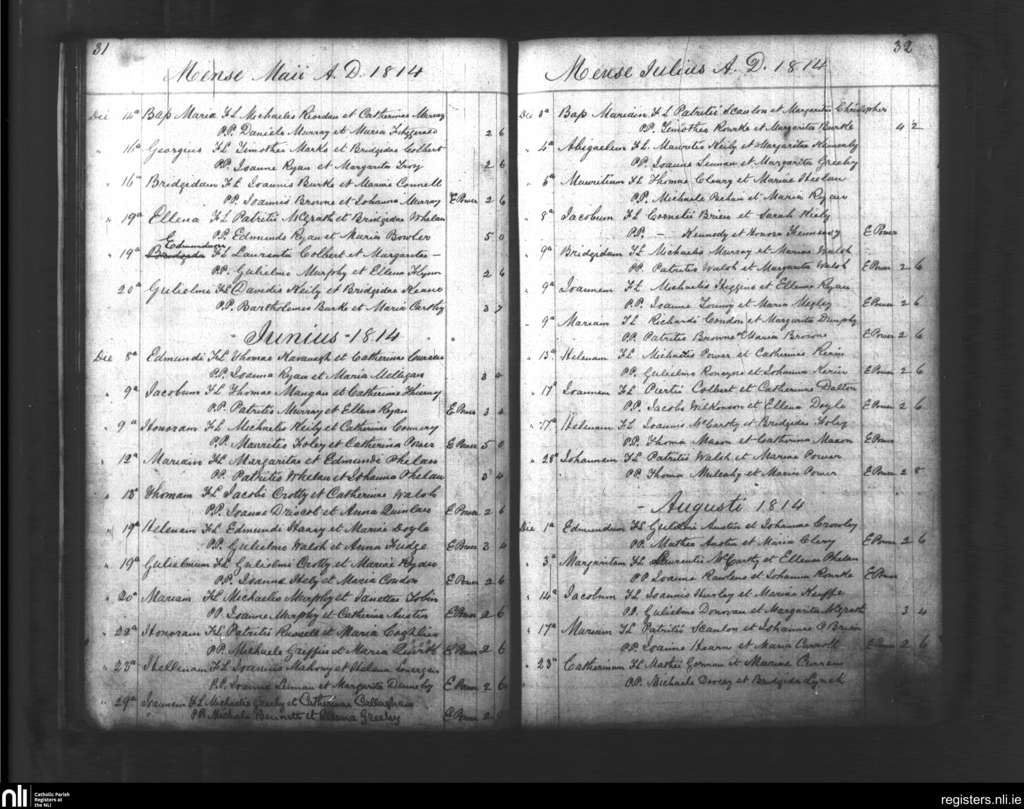 31
Mense Maii A. D. 1814
Die 14a Bap Maria FL Michaelis Riordan et Catherinae Murray
PP. Daniele Murray et Maria Fitzgerald 2 6
" 16a Georgius FL Timothei Marks et Bridgidae Colbert
PP. Joanne Ryan et Margarita 2 6
" 16a Bridgidam FL Joannis Burke et Mariae Connell
PP. Joannis Browne et Johanna Murray E Power 2 6
" 19a Ellena FL Patritii McGrath et Bridgidae Whelan
PP. Edmundo Ryan et Maria Bowler 5 0
Edmundum
" 19a Bridgida FL Laurentii Colbert et Margaritae —
PP. Gulielmo Murphy et Ellena Flynn 2 6
20a Gulielmi FL Davidis Kiely et Bridgidae Keane
P.P. Bartholomeo Burke et Maria Carthy 3 7
- Junius - 1814
Die 8a Edmundi FL Thomae Kavanagh et Catherinae
PP. Joanna Ryan et Maria Milligan 3 4
" 9a Jacobum FL Thomae Mangan et Catherinae
PP. Patritio Murray et Ellena Ryan E Power 3 4
" 9a Honoram FL Michaelis Kiely et Catherinae Connery
PP. Mauritio Foley et Catherina Power E Power 5 0
" 12a Mariam FL Margaritae et Edmundi Phelan
PP. Patritio Whelan et Johanna Phelan 3 4
" 13a Thomam FL Jacobi Crotty et Catherinae Walsh
P.P. Joanne Driscol et Anna Quinlan E Power 2 6
" 19a Helenam FL Edmundi Harry et Mariae Doyle
PP. Gulielmo Walsh et Anna Fudge E Power 3 4
" 19a Gulielmum FL Gulielmi Crotty et Mariae Ryan
PP. Joanne Hely et Maria Condon E Power 2 6
" 20a Mariam FL Michaelis Murphy et Janettae Tobin
PP Joanne Murphy et Catherina Austin E Power 2 6
" 22a Honoram FL Patritii Russell et Maria Coghlan
P.P. Michaele Griffin et Maria Quirk E Power 2 6
" 23a Hellenam FL Joannis Mahony et Helena
P.P. Joanne Leman et Margarita E Power 2 6
" 29a Joannem FL Michaelis Greehy et Catherinae Callaghan
PP. Michele Bennett et Greehy E Power 2
32
Mense Julius A. D. 1814
Die 3a Bap Mariam FL Patritii Scanlon et Margaritae Christopher
P.P. Timotheo Rourke et Margarita Burke 4 2
" 4a Abigaelem FL Mauritii Kiely et Margaritae Kennedy
PP Joanne Leman et Margarita Greehy
" 5a Mauritium FL Thomae Cleary et Mariae Phelan
P.P. Michaele Phelan et Maria Ryan
" 8a Jacobum FL Cornelii Brien et Sarah Kiely
P.P. — Kennedy et Honora Hennessy E Power
" 9a Bridgidam FL Michaelis Murray et Mariae Walsh
PP. Patritio Walsh et Margarita Walsh E Power 2 6
" 9a Joannem FL Michaelis Higgins et Ellenae Ryan
P.P. Joanne Young et Maria E Power 2 6
" 9a Mariam FL Richardi Condon et Margarita Dunphy
PP Patritio Browne et Maria Browne E Power 2 6
" 13a Helenam FL Michaelis Power et Catherinae Kerin
PP. Gulielmo Ronayne et Johanna Kerin E Power 2 6
" 17 Joannem FL Piertii Colbert et Catherinae Dalton
P.P. Jacobo Wilkinson et Ellena Doyle E Power 2 6
" 17a Helenam FL Joannis McCarthy et Bridgidae Foley
PP. Thoma Mason et Catherina Mason E Power
" 28a Johannam FL Patritii Walsh et Mariae Power
PP. Thoma Mulcahy et Maria Power E Power 2 8
- Augusti 1814
Die 1a Edmundum FL Gulielmi Austin et Johannae Crowley
PP. Matheo Austin et Maria Clery E Power 2 6
" 3a Margaritam FL Laurentii McCarthy et Ellenae Phelan
P.P. Joanne Rawlens et Johanna Rourke E Power
" 14a Jacobum FL Joannis Hurley et Mariae Keeffe
P.P. Gulielmo Donovan et Margarita McGrath 3 4
" 17a Mariam FL Patritii Scanlon et Johannae O'Brien
PP Joanne Hearn et Maria Carroll E Power 2 6
" 23a Catherinam FL Mathei Gorman et Mariae Curran
PP. Michaele Dorcey et Bridgida Lynch
nli
Catholic Parish
Registers at
the NLI
registers.nli.ie